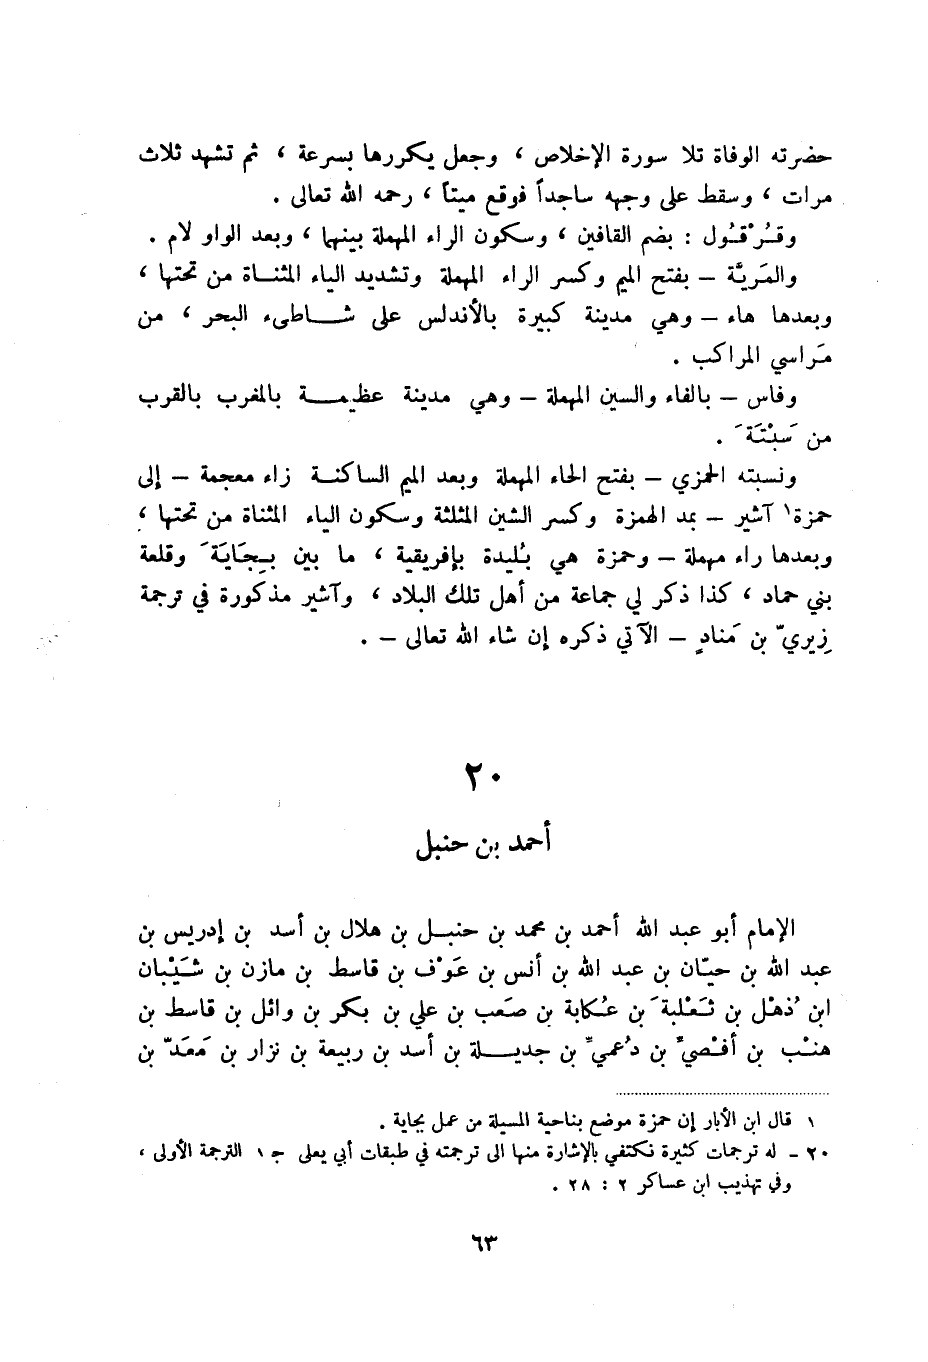 حضرته الوفاة تلا سورة الإخلاص ، وجعل يكررها بسرعة ، ثم تشهد ثلاث
مرات ، وسقط على وجهه ساجداً فوقع ميتاً ، رحمه الله تعالى .
وقُرْقُول : بضم القافين ، وسكون الراء المهملة بينهما ، وبعد الواو لام .
والمَريَّة – بفتح الميم وكسر الراء المهملة وتشديد الياء المثناة من تحتها ،
وبعدها هاء – وهي مدينة كبيرة بالأندلس على شاطىء البحر ، من
مَراسي المراكب .
وفاس – بالفاء والسين المهملة – وهي مدينة عظيمة بالمغرب بالقرب
من سَبْتَةَ .
ونسبته الحمزي – بفتح الحاء المهملة وبعد الميم الساكنة زاء معجمة – إلى
حمزة١ آشير – بمد الهمزة وكسر الشين المثلثة وسكون الياء المثناة من تحتها ،
وبعدها راء مهملة – وحمزة هي بُليدة بإفريقية ، ما بين بِجَايَةَ وقلعة
بني حماد ، كذا ذكر لي جماعة من أهل تلك البلاد ، وآشير مذكورة في ترجمة
زِيري بن مَنادٍ – الآتي ذكره إن شاء الله تعالى – .
٢٠
أحمد بن حنبل
الإمام أبو عبد الله أحمد بن محمد بن حنبل بن هلال بن أسد بن إدريس بن
عبد الله بن حيّان بن عبد الله بن أنس بن عَوْف بن قاسط بن مازن بن شَيْبان
ابن ذُهْل بن ثَعْلبةَ بن عُكابة بن صَعب بن علي بن بكر بن وائل بن قاسط بن
هنْب بن أفْصيّ بن دُعميّ بن جديلة بن أسد بن ربيعة بن نزار بن مَعَدّ بن
١ قال ابن الأبار إن حمزة موضع بناحية المسيلة من عمل بجاية .
٢٠ – له ترجمات كثيرة نكتفي بالإشارة منها الى ترجمته في طبقات أبي يعلى ج ١ الترجمة الأولى ،
وفي تهذيب ابن عساكر ٢ : ٢٨ .
٦٣